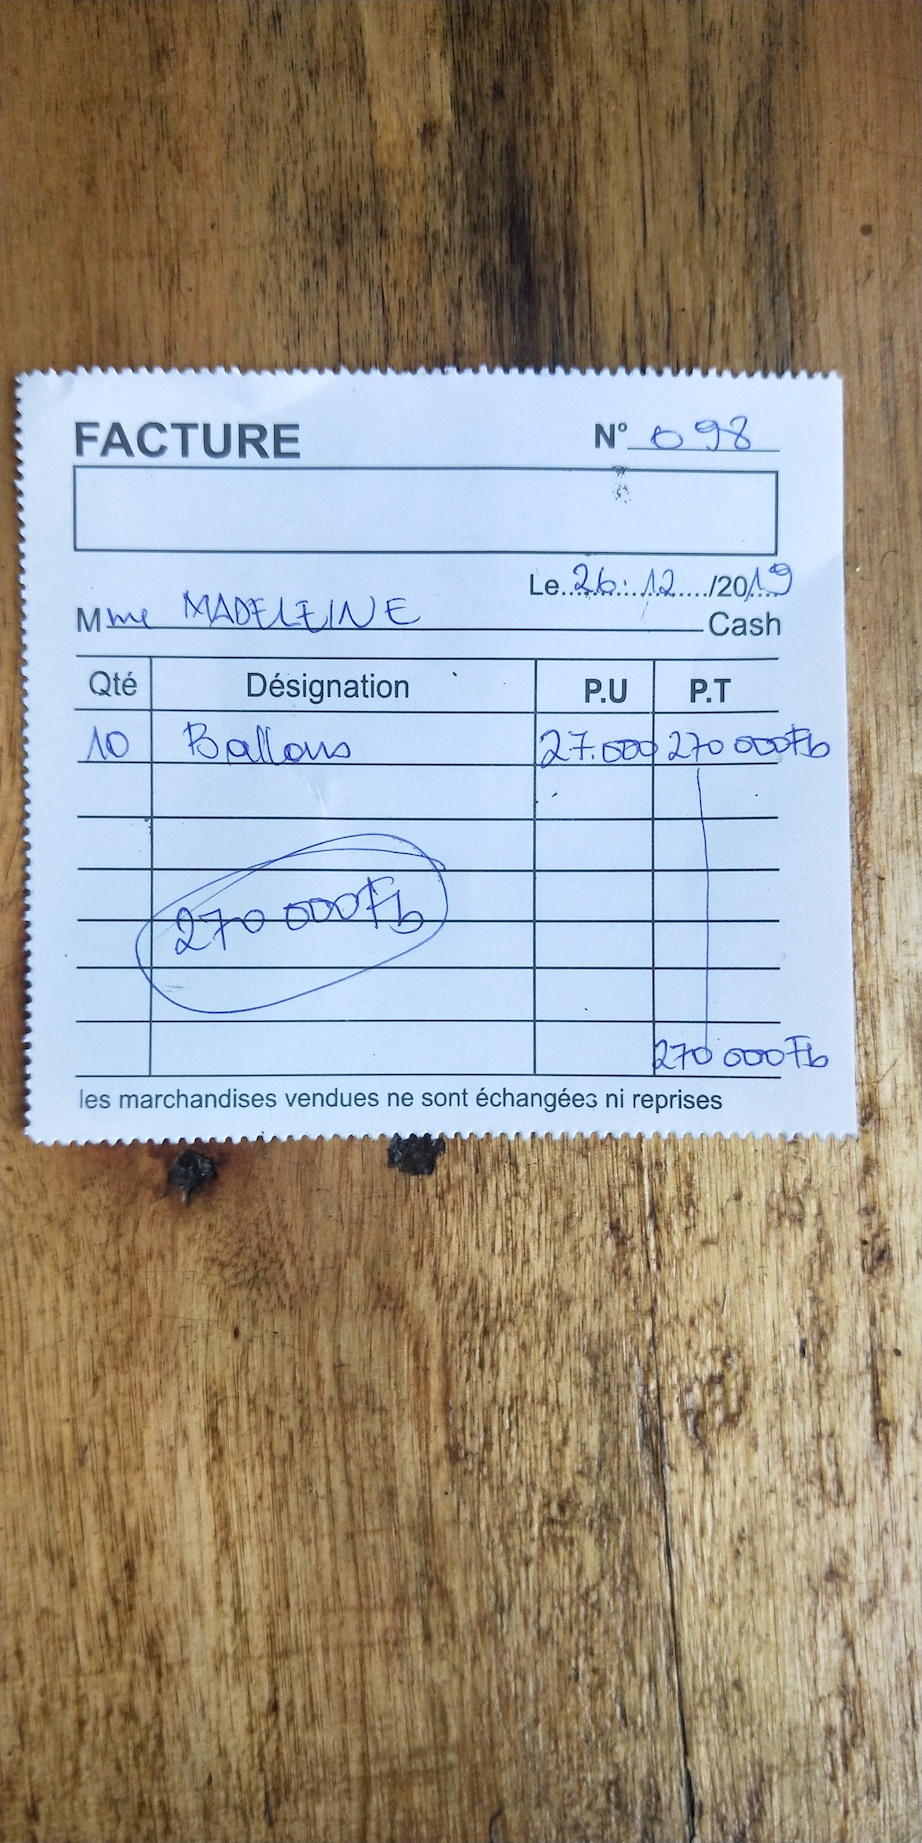 FACTURE N° 098
Le 26.12 /2019
Mme MADELEINE Cash
Qté Désignation P.U P.T
10 Ballons 27.000 270 000Fb
270 000Fb
270 000Fb
les marchandises vendues ne sont échangées ni reprises